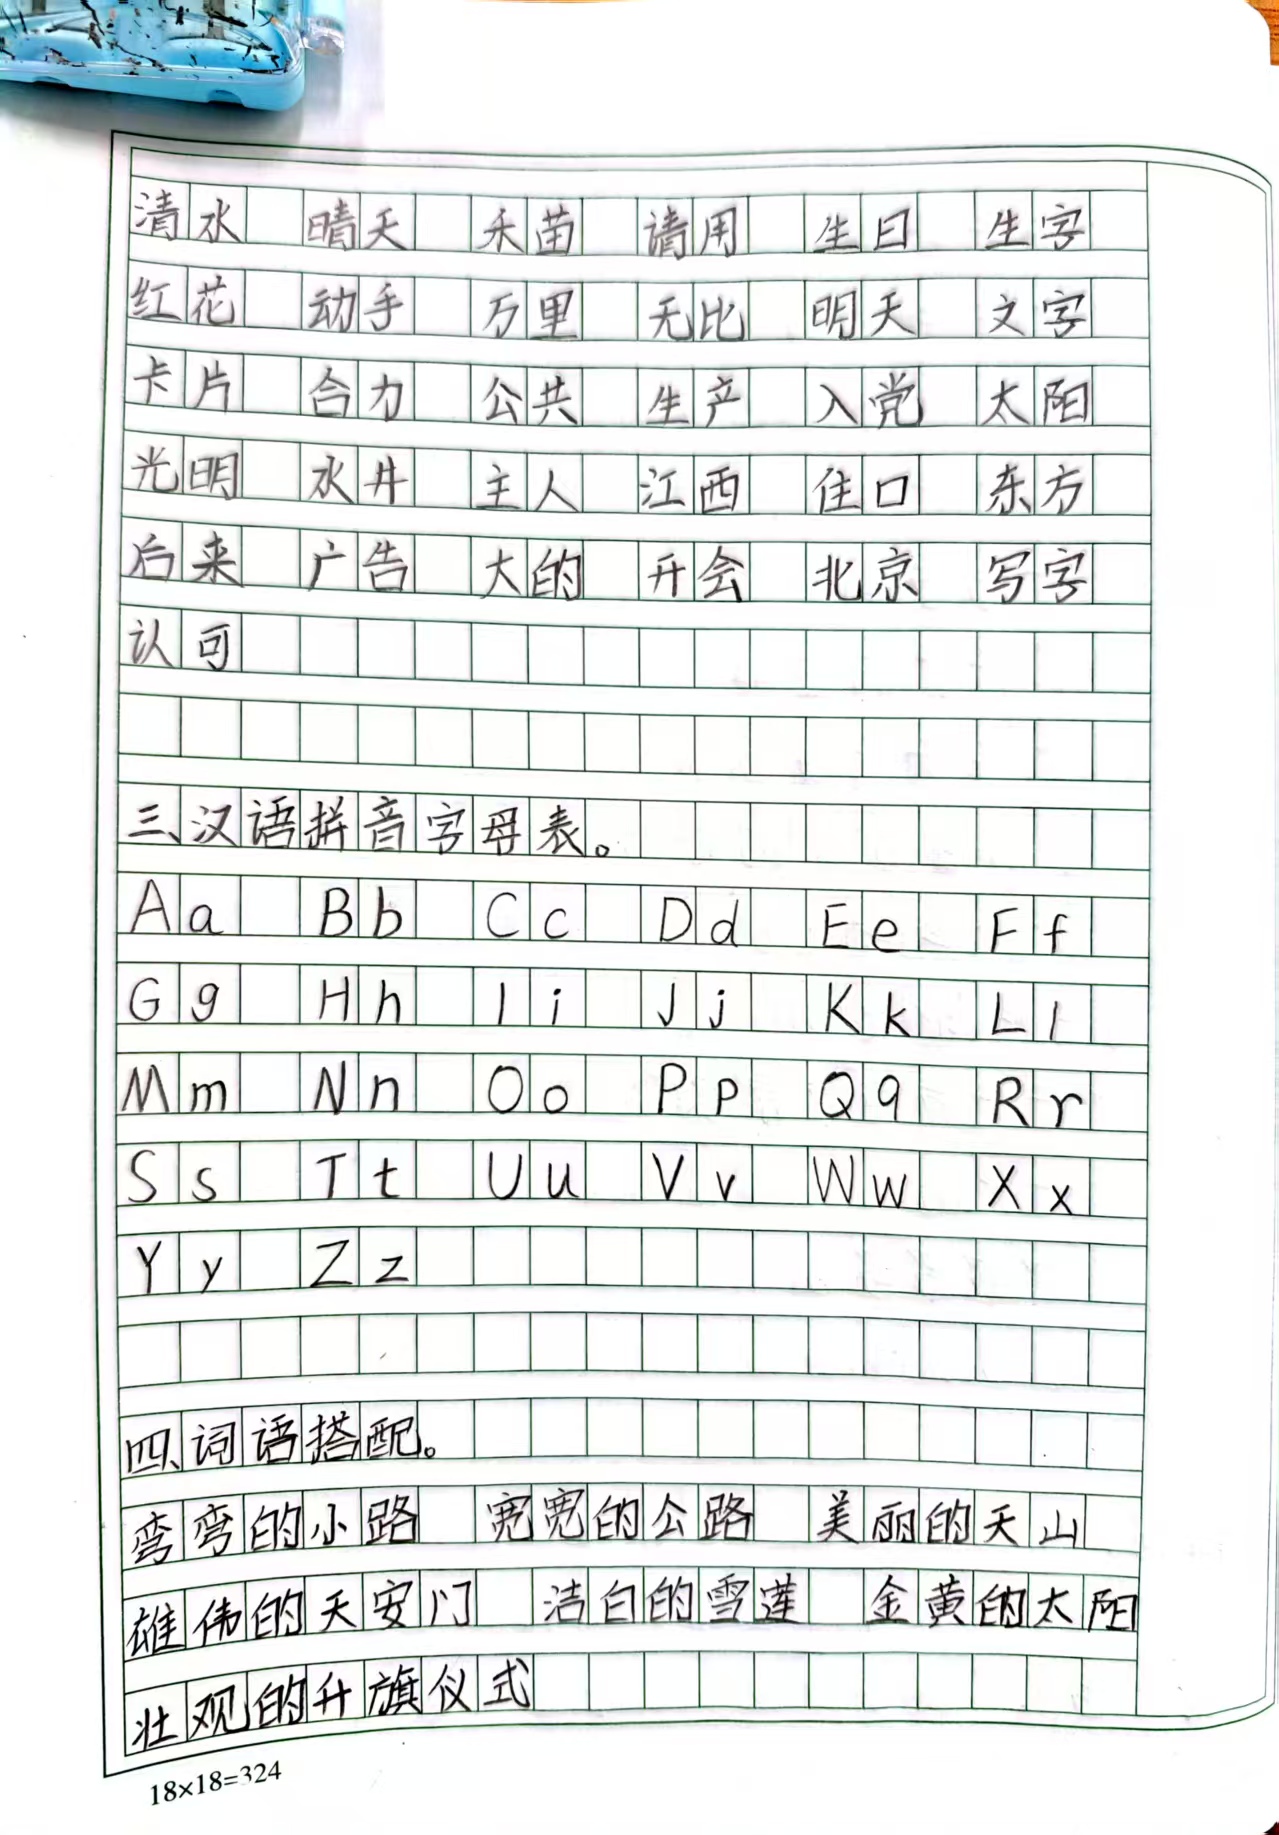 清水 晴天 禾苗 请用 生日 生字
红花 动手 万里 无比 明天 文字
卡片 合力 公共 生产 入党 太阳
光明 水井 主人 江西 住口 东方
后来 广告 大的 开会 北京 写字
认可
三、汉语拼音字母表。
Aa Bb Cc Dd Ee Ff
Gg Hh Ii Jj Kk Ll
Mm Nn Oo Pp Qq Rr
Ss Tt Uu Vv Ww Xx
Yy Zz
四、词语搭配。
弯弯的小路 宽宽的公路 美丽的天山
雄伟的天安门 洁白的雪莲 金黄的太阳
壮观的升旗仪式
18×18=324